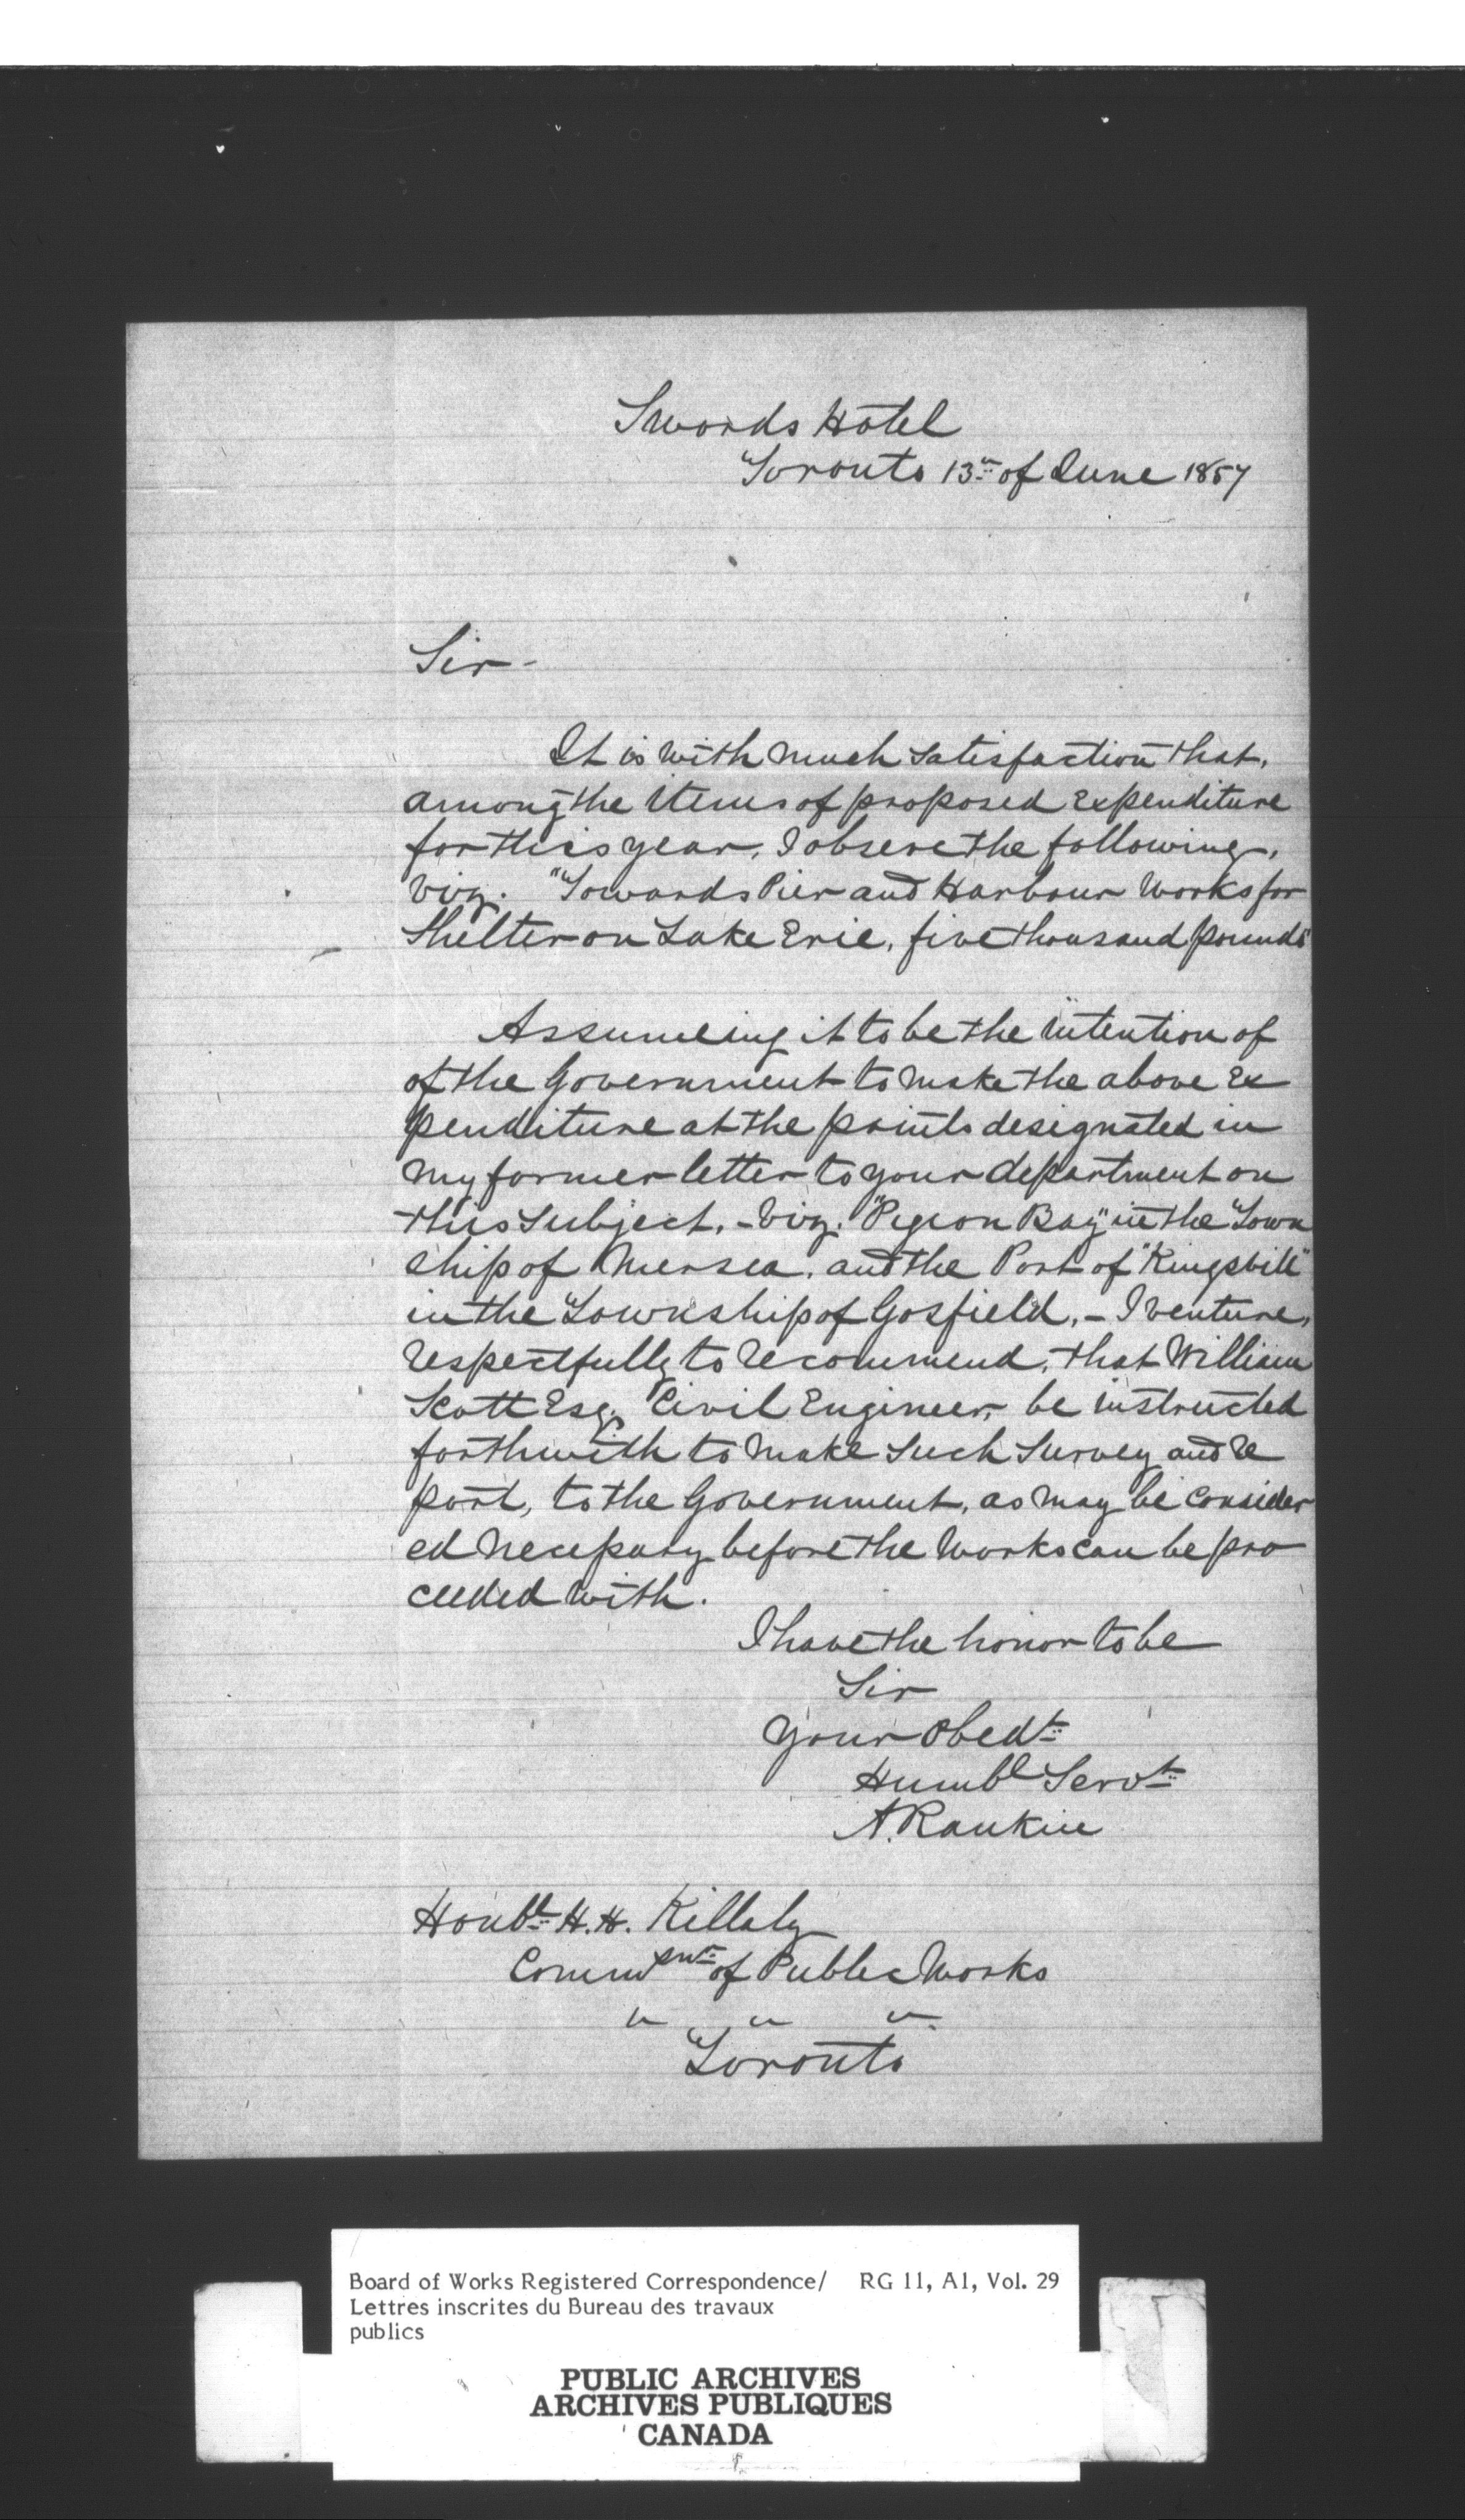 Swords Hotel
Toronto 13th of June 1857
Sir -
It is with much satisfaction that,
among the items of proposed expenditure
for this year, I observe the following,
viz. "Towards Pier and Harbour Works for
Shelter on Lake Erie, five thousand pounds"
Assumeing it to be the intention of
of the Government to make the above ex
penditure at the points designated in
my former letter to your department on
this subject, - viz. "Pigeon Bay" in the Town
ship of Mersea, and the Port of "Kingsvill"
in the Township of Gosfield, - I venture,
respectfully to recommend, that William
Scott Esq. Civil Engineer, be instructed
forthwith to make such survey and re
port, to the Government, as may be consider
ed necessary before the works can be pro
ceeded with.
I have the honor to be
Sir
Your Obedt
Humbl Servt
A. Rankin
Honbl H. H. Killaly
Commr of Public Works
" " "
Toronto
Board of Works Registered Correspondence/ RG 11, A1, Vol. 29
Lettres inscrites du Bureau des travaux
publics
PUBLIC ARCHIVES
ARCHIVES PUBLIQUES
CANADA